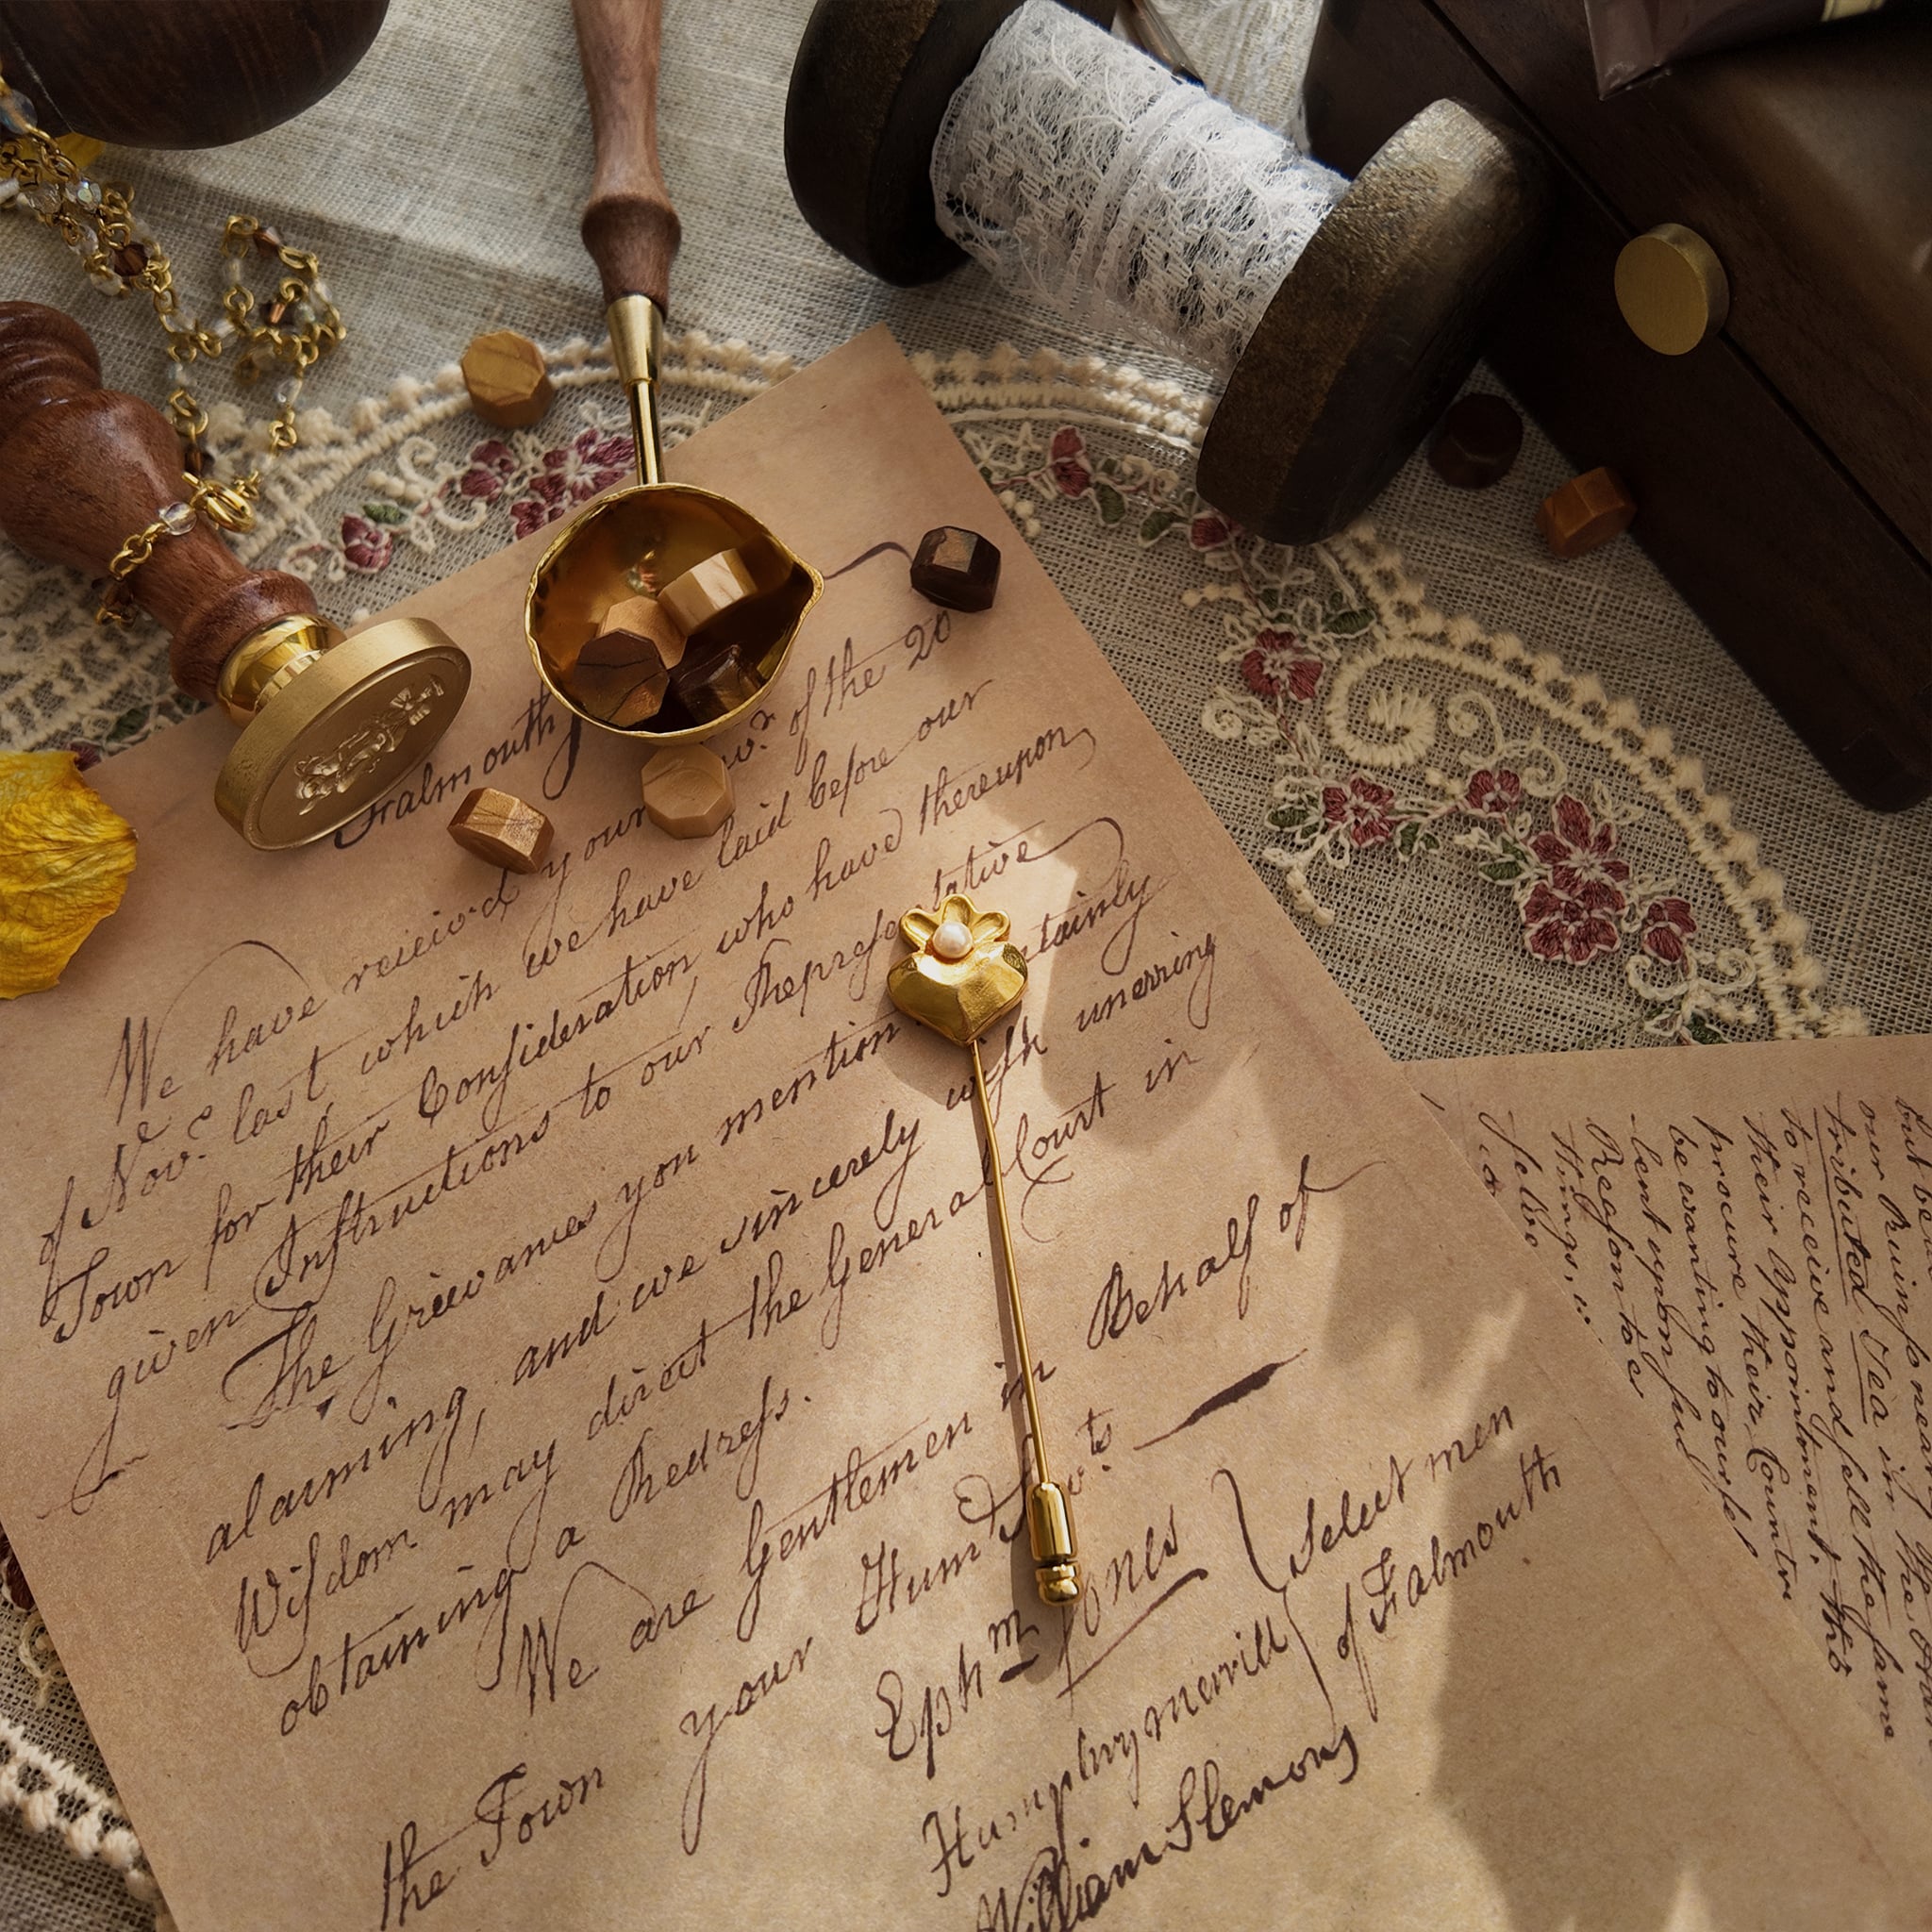 Falmouth
We have reciev'd your Fav.r of the 20
of Nov.r last which we have laid before our
Town for their Consideration who have thereupon
given Instructions to our Representative
The Grievances you mention certainly
alarming, and we sincerely wish unerring
Wisdom may direct the General Court in
obtaining a Redress.
We are Gentlemen in Behalf of
the Town your Hum Serv.ts
Eph.m Jones
Humphry Merrill
William Slemons
Select men
of Falmouth
but be
our Ruin, so near
tributed Tea in the
to receive and sell the same
their Appointment. The
procure their Countre
be wanting to oursel
lent upon
Reason to
things,